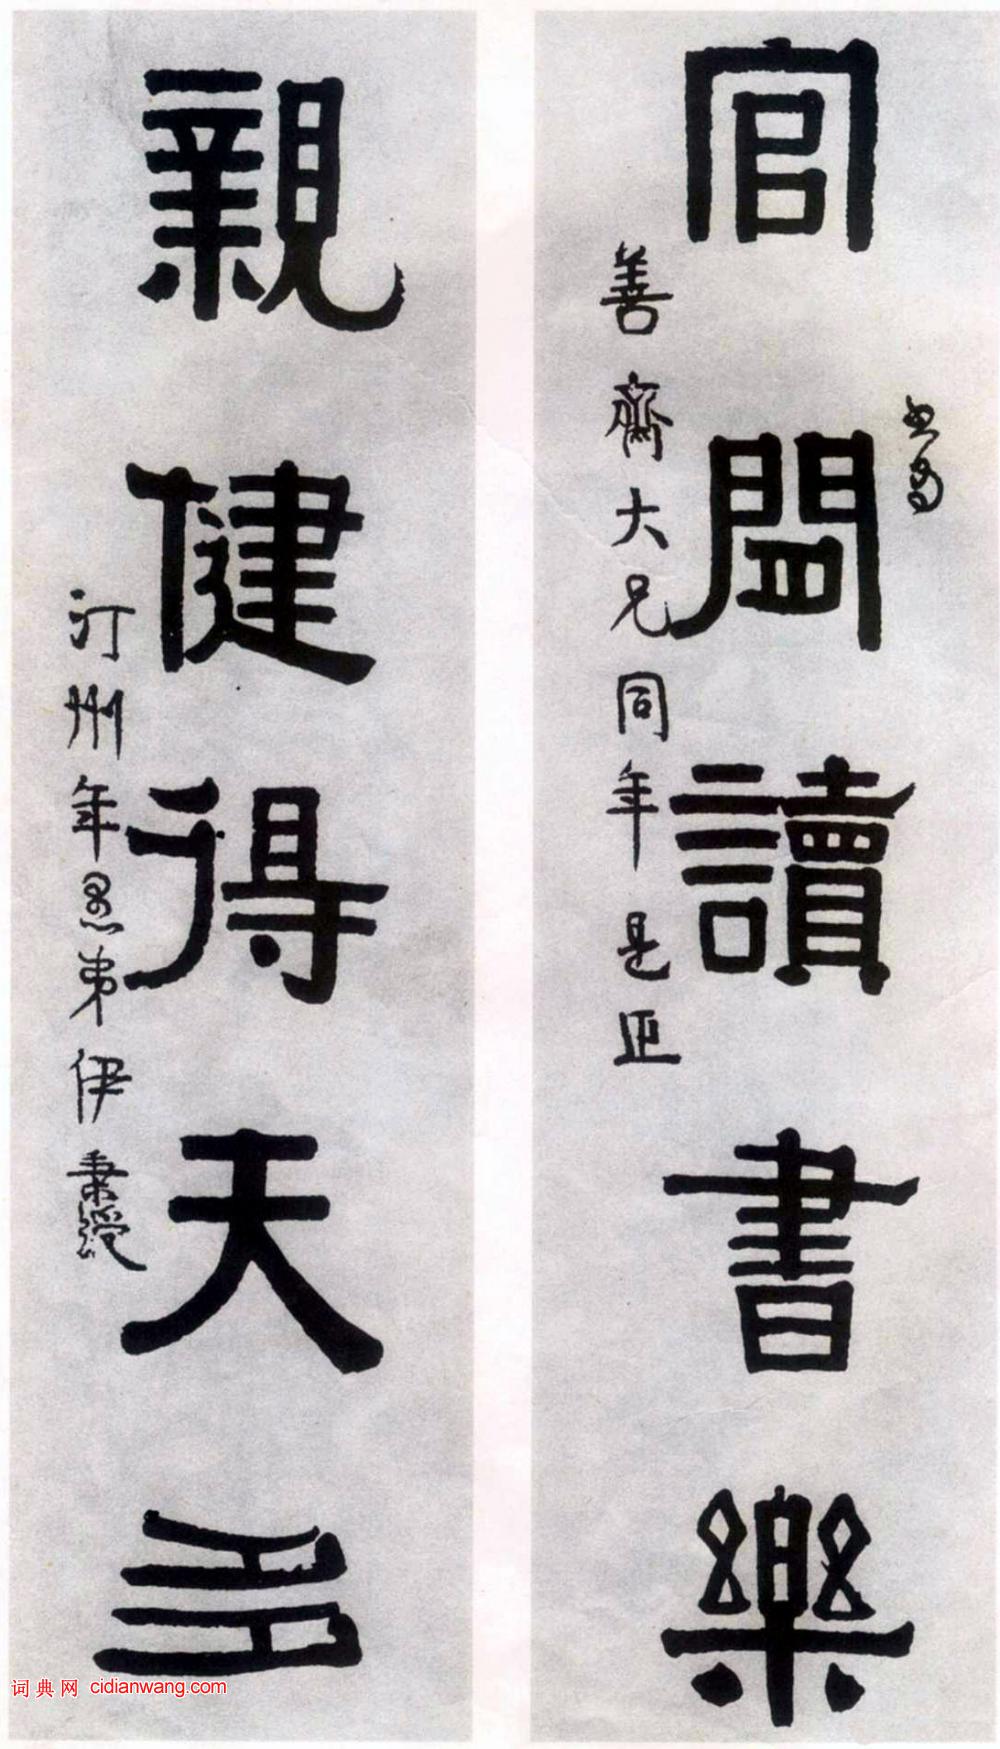 官閒讀書樂
善齋大兄同年是正
親健得天多
汀州年愚弟伊秉綬
词典网 cidianwang.com